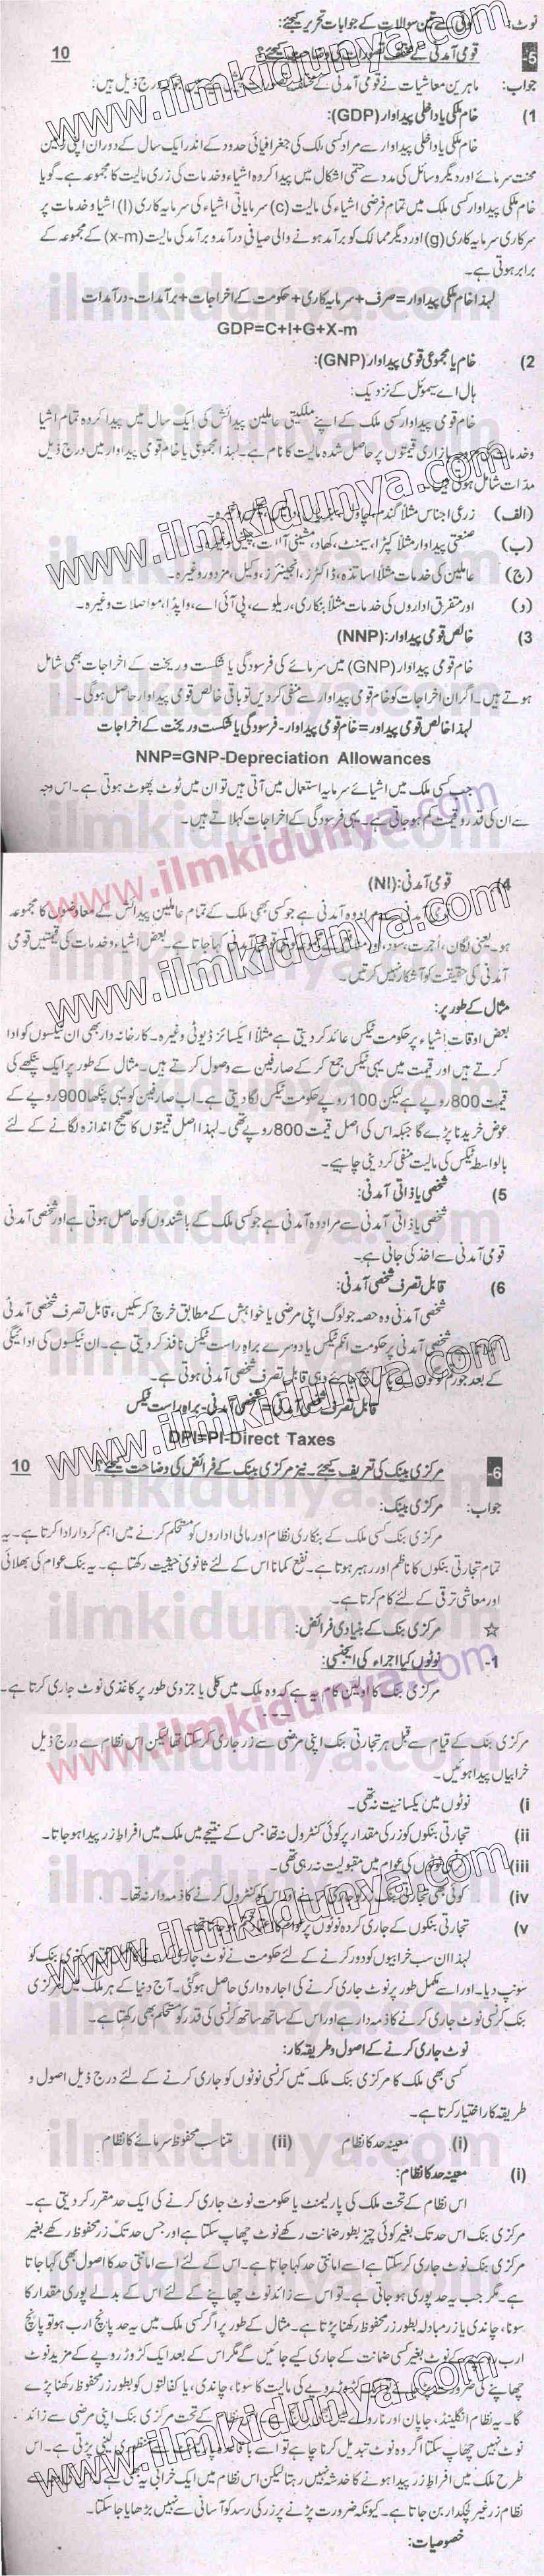 نوٹ: کوئی سے تین سوالات کے جوابات تحریر کیجئے:
-5 قومی آمدنی کے مختلف تصورات کی وضاحت کیجئے؟ 10
جواب: ماہرین معاشیات نے قومی آمدنی کے مختلف تصورات درج ذیل ہیں:
1) خام ملکی یا داخلی پیداوار (GDP):
خام ملکی یا داخلی پیداوار سے مراد کسی ملک کی جغرافیائی حدود کے اندر ایک سال کے دوران اپنی زمین
محنت سرمائے اور دیگر وسائل کی مدد سے حتمی اشکال میں پیدا کردہ اشیاء و خدمات کی زری مالیت کا مجموعہ ہے۔ گویا
خام ملکی پیداوار کسی ملک میں تمام فرضی اشیاء کی مالیت (c) سرمایاتی اشیاء کی سرمایہ کاری (I) اشیا و خدمات پر
سرکاری سرمایہ کاری (g) اور دیگر ممالک کو برآمد ہونے والی صافی درآمد و برآمد کی مالیت (x-m) کے مجموعہ کے
برابر ہوتی ہے۔
لہذا خام ملکی پیداوار = صرف + سرمایہ کاری + حکومت کے اخراجات + برآمدات - درآمدات
GDP=C+I+G+X-m
2) خام یا مجموعی قومی پیداوار (GNP):
پال اے سیموئل کے نزدیک:
خام قومی پیداوار کسی ملک کے اپنے ملکیتی عاملین پیدائش کی ایک سال میں پیدا کردہ تمام اشیا
و خدمات بازاری قیمتوں پر حاصل شدہ مالیت کا نام ہے۔ لہذا مجموعی یا خام قومی پیداوار میں درج ذیل
مدات شامل ہوتی ہیں۔
(الف) زرعی اجناس مثلاً گندم، چاول، وغیرہ۔
(ب) صنعتی پیداوار مثلاً کپڑا، سیمنٹ، کھاد، مشینی آلات، چینی وغیرہ۔
(ج) عاملین کی خدمات مثلاً اساتذہ، ڈاکٹرز، انجینئرز، وکیل، مزدور وغیرہ۔
(د) اور متفرق اداروں کی خدمات مثلاً بنکاری، ریلوے، پی آئی اے، واپڈا، مواصلات وغیرہ۔
3) خالص قومی پیداوار: (NNP)
خام قومی پیداوار (GNP) میں سرمائے کی فرسودگی یا شکست و ریخت کے اخراجات بھی شامل
ہوتے ہیں۔ اگر ان اخراجات کو خام قومی پیداوار سے منفی کر دیں تو باقی خالص قومی پیداوار حاصل ہوگی۔
لہذا خالص قومی پیداور = خام قومی پیداوار - فرسودگی یا شکست و ریخت کے اخراجات
NNP=GNP-Depreciation Allowances
جب کسی ملک میں اشیائے سرمایہ استعمال میں آتی ہیں تو ان میں ٹوٹ پھوٹ ہوتی ہے۔ اس وجہ
سے ان کی قدر و قیمت کم ہو جاتی ہے۔ یہی فرسودگی کے اخراجات کہلاتے ہیں۔
4) قومی آمدنی: (NI)
قومی آمدنی سے مراد وہ آمدنی ہے جو کسی بھی ملک کے تمام عاملین پیدائش کے معاوضوں کا مجموعہ
ہو۔ یعنی لگان، اجرت، سود، اور منافع کے مجموعہ کو قومی آمدنی کہا جاتا ہے۔ بعض اشیاء و خدمات کی قیمتیں قومی
آمدنی کی حقیقت کو آشکار نہیں کرتیں۔
مثال کے طور پر:
بعض اوقات اشیاء پر حکومت ٹیکس عائد کر دیتی ہے مثلاً ایکسائز ڈیوٹی وغیرہ۔ کارخانہ دار بھی ان ٹیکسوں کو ادا
کرتے ہیں اور قیمت میں یہی ٹیکس جمع کر کے صارفین سے وصول کرتے ہیں۔ مثال کے طور پر ایک پنکھے کی
قیمت 800 روپے ہے لیکن 100 روپے حکومت ٹیکس لگا دیتی ہے۔ اب صارفین کو یہی پنکھا 900 روپے کے
عوض خریدنا پڑے گا جبکہ اس کی اصل قیمت 800 روپے تھی۔ لہذا اصل قیمتوں کا صحیح اندازہ لگانے کے لئے
بالواسطہ ٹیکس کی مالیت منفی کر دینی چاہیے۔
5) شخصی یا ذاتی آمدنی:
شخصی یا ذاتی آمدنی سے مراد وہ آمدنی ہے جو کسی ملک کے باشندوں کو حاصل ہوتی ہے اور شخصی آمدنی
قومی آمدنی سے اخذ کی جاتی ہے۔
6) قابل تصرف شخصی آمدنی:
شخصی آمدنی وہ حصہ جو لوگ اپنی مرضی یا خواہش کے مطابق خرچ کر سکیں، قابل تصرف شخصی آمدنی
شخصی آمدنی پر حکومت انکم ٹیکس یا دوسرے براہ راست ٹیکس نافذ کر دیتی ہے۔ ان ٹیکسوں کی ادائیگی
کے بعد جو رقم لوگوں کے پاس بچ جائے وہی قابل تصرف شخصی آمدنی ہوتی ہے۔
قابل تصرف شخصی آمدنی = شخصی آمدنی - براہ راست ٹیکس
DPI=PI-Direct Taxes
-6 مرکزی بینک کی تعریف کیجئے۔ نیز مرکزی بینک کے فرائض کی وضاحت کیجئے؟ 10
جواب: مرکزی بینک:
مرکزی بنک کسی ملک کے بنکاری نظام اور مالی اداروں کو مستحکم کرنے میں اہم کردار ادا کرتا ہے۔ یہ
تمام تجارتی بنکوں کا ناظم اور رہبر ہوتا ہے۔ نفع کمانا اس کے لئے ثانوی حیثیت رکھتا ہے۔ یہ بنک عوام کی بھلائی
اور معاشی ترقی کے لئے کام کرتا ہے۔
☆ مرکزی بنک کے بنیادی فرائض:
-1 نوٹوں کیا اجراء کی ایجنسی:
مرکزی بنک کا اولین کام یہ ہے کہ وہ ملک میں کلی یا جزوی طور پر کاغذی نوٹ جاری کرتا ہے۔
مرکزی بنک کے قیام سے قبل ہر تجارتی بنک اپنی مرضی سے زر جاری کر سکتا تھا لیکن اس نظام سے درج ذیل
خرابیاں پیدا ہوئیں۔
i) نوٹوں میں یکسانیت نہ تھی۔
ii) تجارتی بنکوں کو زر کی مقدار پر کوئی کنٹرول نہ تھا جس کے نتیجے میں ملک میں افراط زر پیدا ہو جاتا۔
iii) نوٹوں کی عوام میں مقبولیت نہ رہی تھی۔
iv) کوئی بھی تجارتی بنک زر کو جاری کرنے اور اس کو کنٹرول کرنے کا ذمہ دار نہ تھا۔
v) تجارتی بنکوں کے جاری کردہ نوٹوں پر عوام کا
لہذا ان سب خرابیوں کو دور کرنے کے لئے حکومت نے نوٹ جاری مرکزی بنک کو
سونپ دیا۔ اور اسے مکمل طور پر نوٹ جاری کرنے کی اجارہ داری حاصل ہوگئی۔ آج دنیا کے ہر ملک میں مرکزی
بنک کرنسی نوٹ جاری کرنے کا ذمہ دار ہے اور اس کے ساتھ ساتھ کرنسی کی قدر کو مستحکم بھی رکھتا ہے۔
نوٹ جاری کرنے کے اصول و طریقہ کار:
کسی بھی ملک کا مرکزی بنک ملک میں کرنسی نوٹوں کو جاری کرنے کے لئے درج ذیل اصول و
طریقہ کار اختیار کرتا ہے۔
(i) معینہ حد کا نظام (ii) متناسب محفوظ سرمائے کا نظام
(i) معینہ حد کا نظام:
اس نظام کے تحت ملک کی پارلیمنٹ یا حکومت نوٹ جاری کرنے کی ایک حد مقرر کر دیتی ہے۔
مرکزی بنک اس حد تک بغیر کوئی چیز بطور ضمانت رکھے نوٹ چھاپ سکتا ہے اور جس حد تک زر محفوظ رکھے بغیر
مرکزی بنک نوٹ جاری کر سکتا ہے اسے امانتی حد کہا جاتا ہے۔ اس کے لئے اسے امانتی حد کا اصول بھی کہا جاتا
ہے۔ مگر جب یہ حد پوری ہو جاتی ہے۔ تو اس سے زائد نوٹ چھاپنے کے لئے اس کے بدلے پوری مقدار کا
سونا، چاندی یا زر مبادلہ بطور زر محفوظ رکھنا پڑتا ہے۔ مثال کے طور پر اگر کسی ملک میں یہ حد پانچ ارب ہو تو پانچ
ارب روپے کے نوٹ بغیر کسی ضمانت کے جاری کیے جائیں گے مگر اس کے بعد ایک کڑوڑ روپے کے مزید نوٹ
چھاپنے کی ضرورت روپے کی مالیت کا سونا، چاندی، یا کفالتوں کو بطور زر محفوظ رکھنا پڑے
گا۔ یہ نظام انگلینڈ، جاپان اور ناروے میں کے تحت مرکزی بنک اپنی مرضی سے زائد
نوٹ نہیں چھاپ سکتا اگر وہ نوٹ تبدیل کرنا چاہے تو اسے منظوری لینی پڑتی ہے۔ اس
طرح ملک میں افراط زر پیدا ہونے کا خدشہ نہیں رہتا لیکن اس نظام میں ایک خرابی یہ بھی ہے
نظام زر غیر لچکدار بن جاتا ہے۔ کیونکہ ضرورت پڑنے پر زر کی رسد کو آسانی سے نہیں بڑھایا جا سکتا۔
خصوصیات:
www.ilmkidunya.com